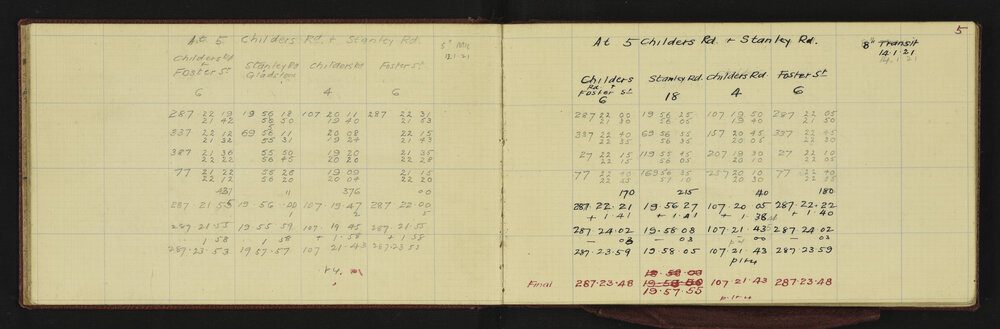 At 5 Childers Rd. + Stanley Rd.
5" Mic
Childers Rd + Foster St Stanley Rd Gladstone Childers Rd Foster St
6 4 6
287 22 19 19 56 18 107 20 11 287 22 31
21 42 56 50 19 40 21 53
337 22 12 69 56 11 20 08 22 15
21 32 55 31 19 24 21 43
387 21 36 55 50 19 20 21 35
22 22 56 45 20 20 22 28
77 21 22 55 26 19 09 21 15
22 12 56 20 20 04 22 20
437 11 376 00
287.21.55 19.56.00 107.19.47 287 22.00
1 2 5
287 21.55 19 55 59 107. 19 45 287 21.55
1 58 1 58 + 1.58 + 1 58
287.23.53 19 57.57 107 21.43 287 23 53
5
At 5 Childers Rd. + Stanley Rd.
8" Transit
14.1.21
14.1.21
Childers Rd + Foster St Stanley Rd. Childers Rd Foster St
6 18 4 6
287 22 00 19 56 25 107 19 50 287 22 05
21 30 56 05 19 40 21 50
337 22 40 69 56 55 157 20 45 337 22 45
22 35 56 35 20 05 22 30
27 22 15 119 55 45 207 19 30 27 22 10
22 15 56 05 20 10 22 05
77 22 40 169 56 35 257 20 10 77 22 40
22 45 57 10 20 30 22 45
170 215 40 180
287.22.21 19.56 27 107.20.05 287.22.22
+ 1.41 + 1.41 + 1.38 + 1.40
287 24.02 19.58.08 107.21.43 287 24 02
– 03 – 03 00 – 03
287.23.59 19.58.05 107.21.43 287 23.59
plus
Final 287.23.48 19.57.55 107.21.43 287.23.48
plus